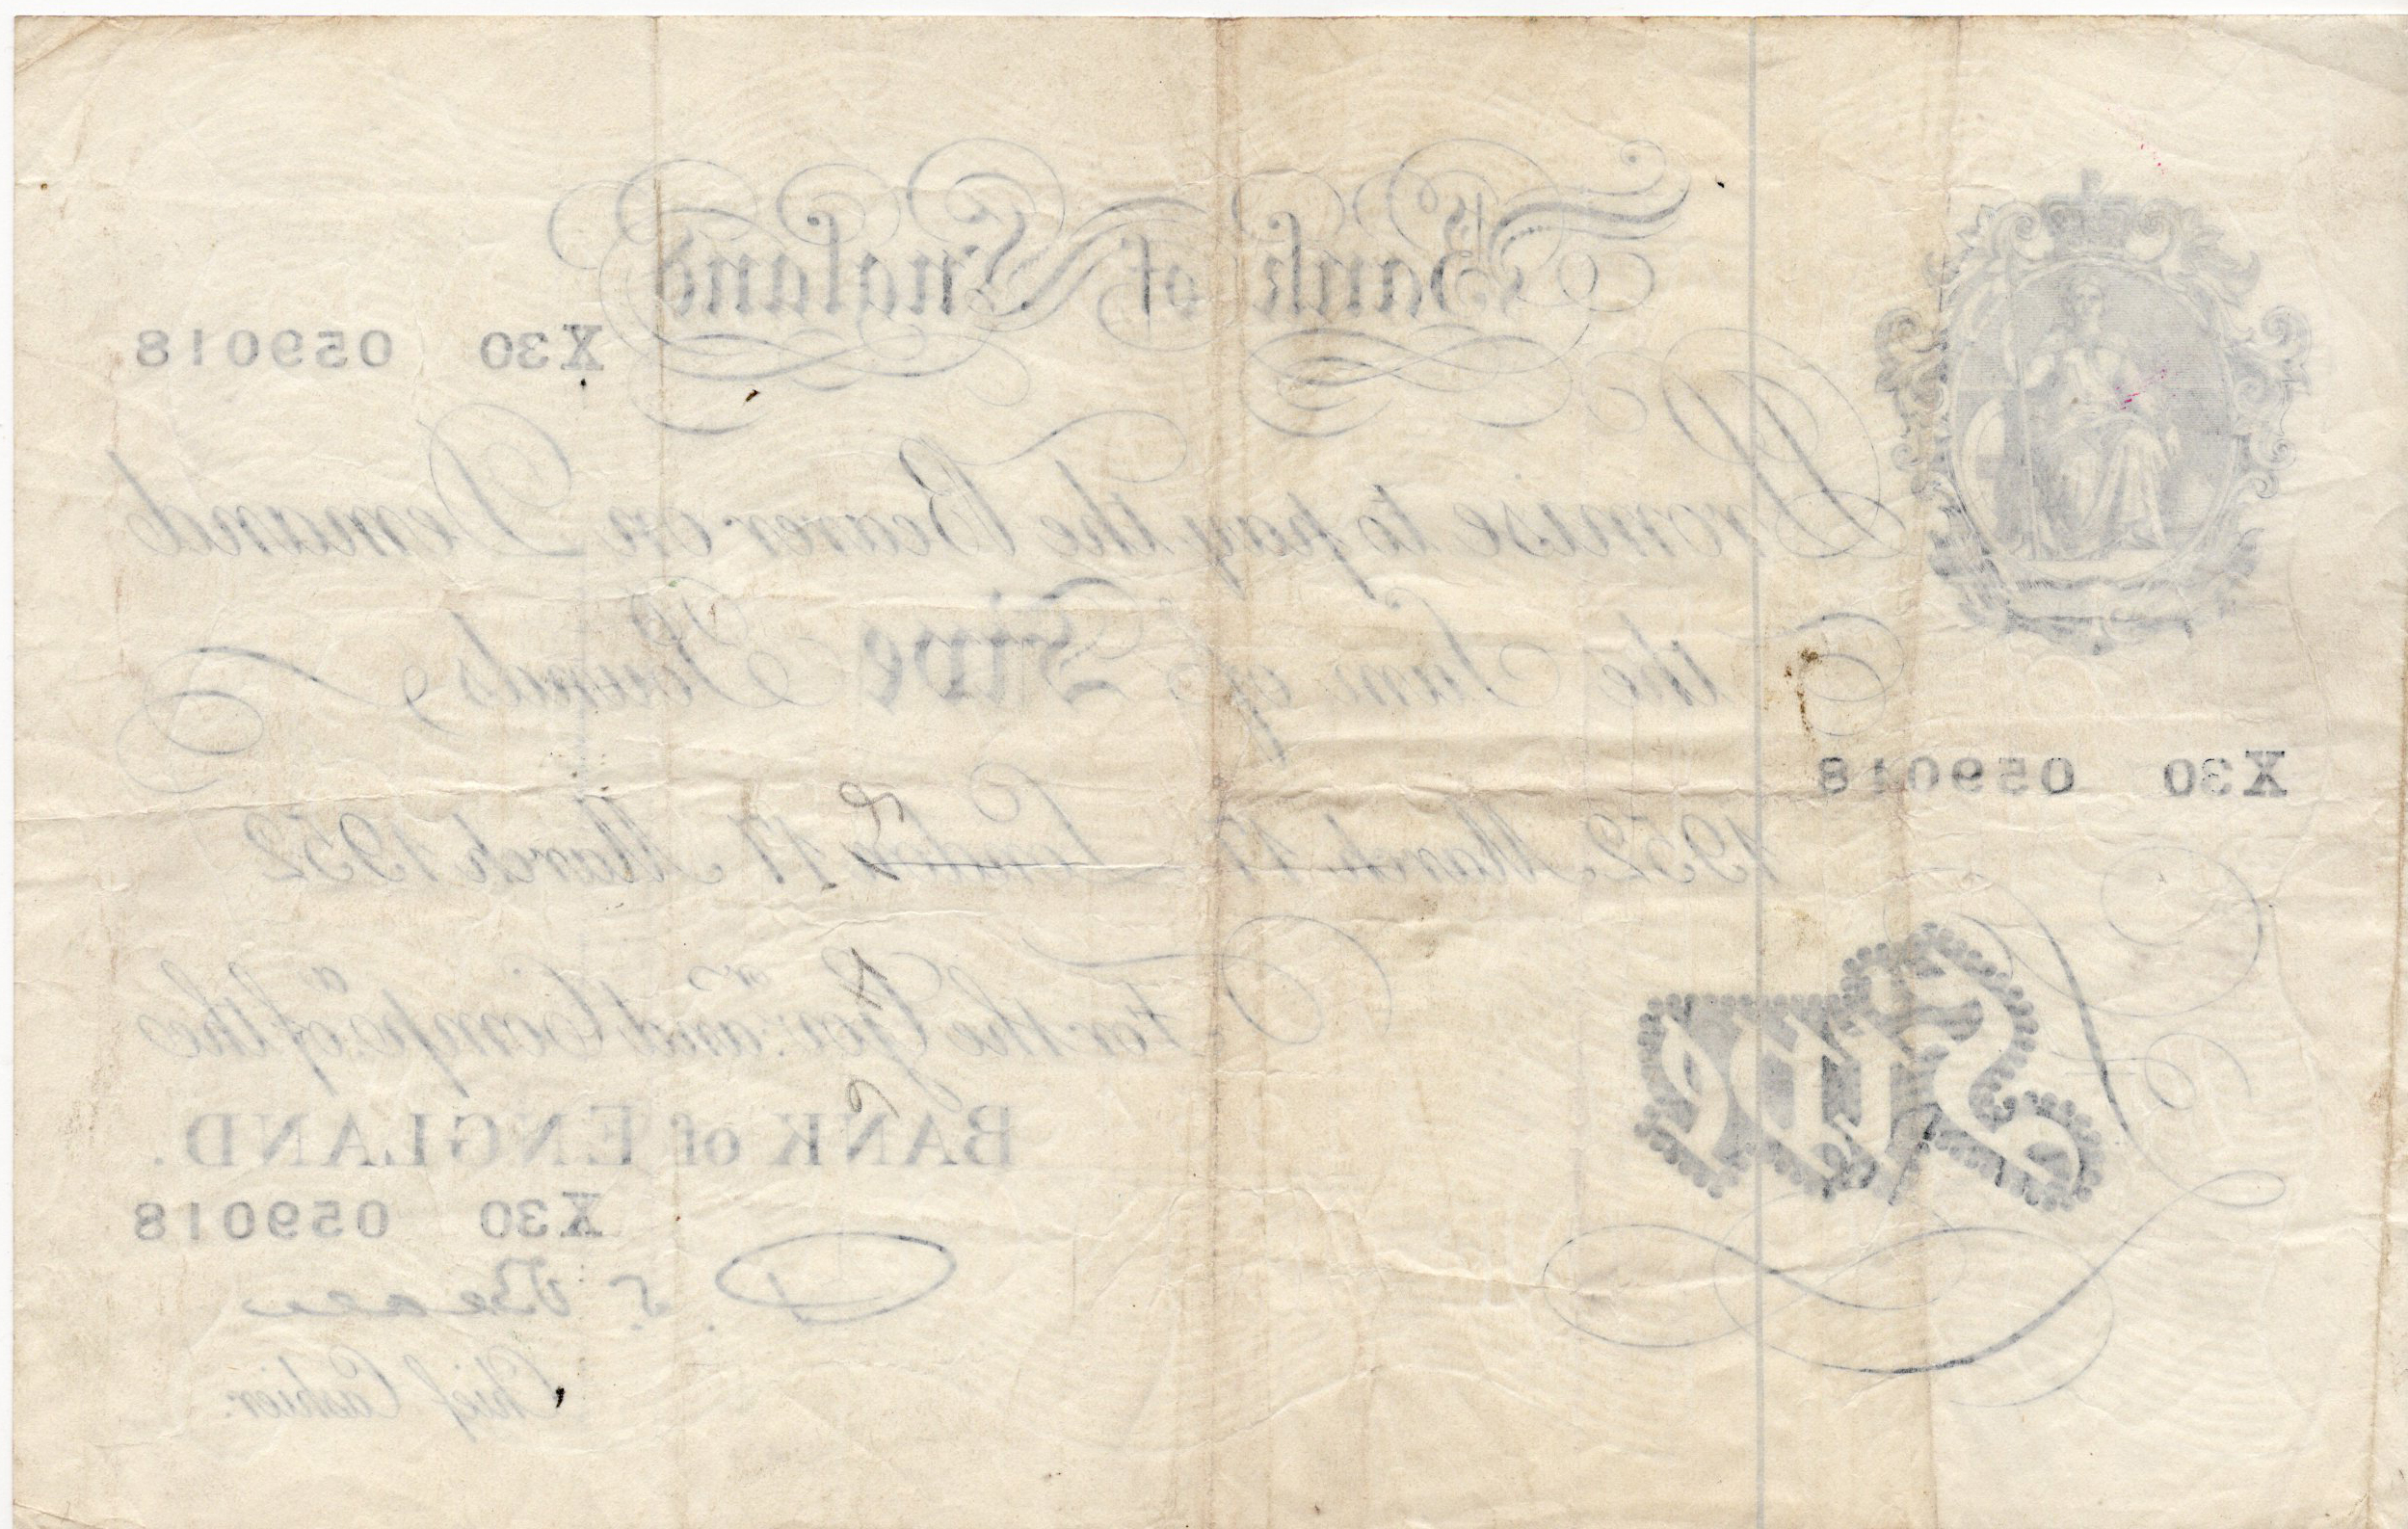 Bank of England
X30 059018
Promise to pay the Bearer on Demand
the Sum of Five Pounds
X30 059018
1952 March 17 London 17 March 1952
For the Govr. and Compa. of the
BANK of ENGLAND.
Five
X30 059018
P. S. Beale
Chief Cashier.